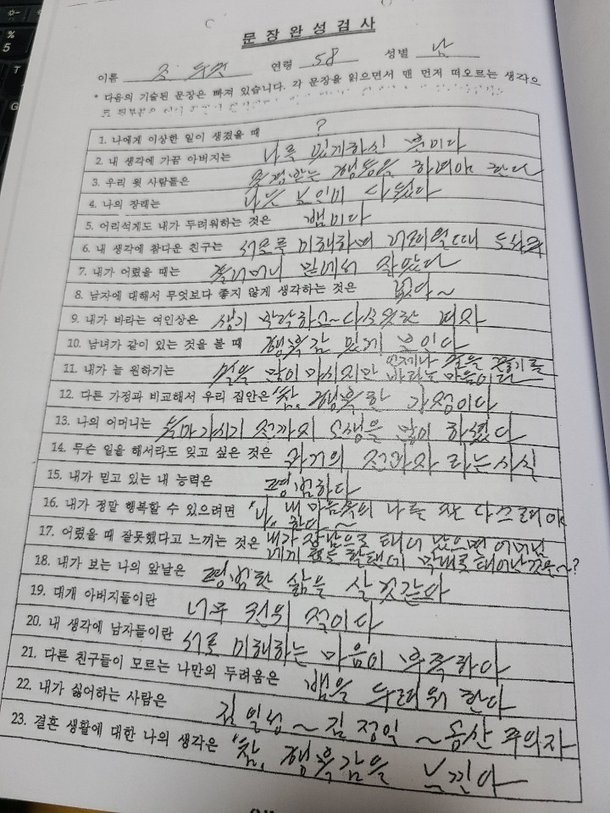 문장완성검사
이름 조 두 연령 58 성별 남
* 다음의 기술된 문장은 빠져 있습니다. 각 문장을 읽으면서 맨 먼저 떠오르는 생각으
로
1. 나에게 이상한 일이 생겼을 때 ?
2. 내 생각에 가끔 아버지는 나를 있게하신 분이다
3. 우리 윗 사람들은 존경받는 행동을 하여야 한다
4. 나의 장래는 나는 노인이 다 됬다
5. 어리석게도 내가 두려워하는 것은 뱀이다
6. 내 생각에 참다운 친구는 서로를 이해하며 어려울때
7. 내가 어렸을 때는 홀어머니 밑에서 자랐다
8. 남자에 대해서 무엇보다 좋지 않게 생각하는 것은 없다~
9. 내가 바라는 여인상은 생기 발락하고~다소곳한 여자
10. 남녀가 같이 있는 것을 볼 때 행복감 있게 보인다
11. 내가 늘 원하기는 술을 많이 마시지만 언제나 술을 끊기를 바라는 마음이다
12. 다른 가정과 비교해서 우리 집안은 "참, 행복한 가정이다
13. 나의 어머니는 돌아가시기 전까지 고생을 많이 하셨다
14. 무슨 일을 해서라도 잊고 싶은 것은 과거의 전과자 라는사실
15. 내가 믿고 있는 내 능력은 평범하다
16. 내가 정말 행복할 수 있으려면 내 마음속의 나를 잘 다스려야
한다~
17. 어렸을 때 잘못했다고 느끼는 것은 내가 장남으로 태어 났으면 어머님
에게 효도를 할텐데 막내로 태어난것을~?
18. 내가 보는 나의 앞날은 평범한 삶을 살것같다
19. 대개 아버지들이란 너무 권위 적이다
20. 내 생각에 남자들이란 서로 이해하는 마음이 부족하다
21. 다른 친구들이 모르는 나만의 두려움은 뱀을 두려워 한다
22. 내가 싫어하는 사람은 김일성~김정일~공산주의자
23. 결혼 생활에 대한 나의 생각은 "참, 행복감을 느낀다